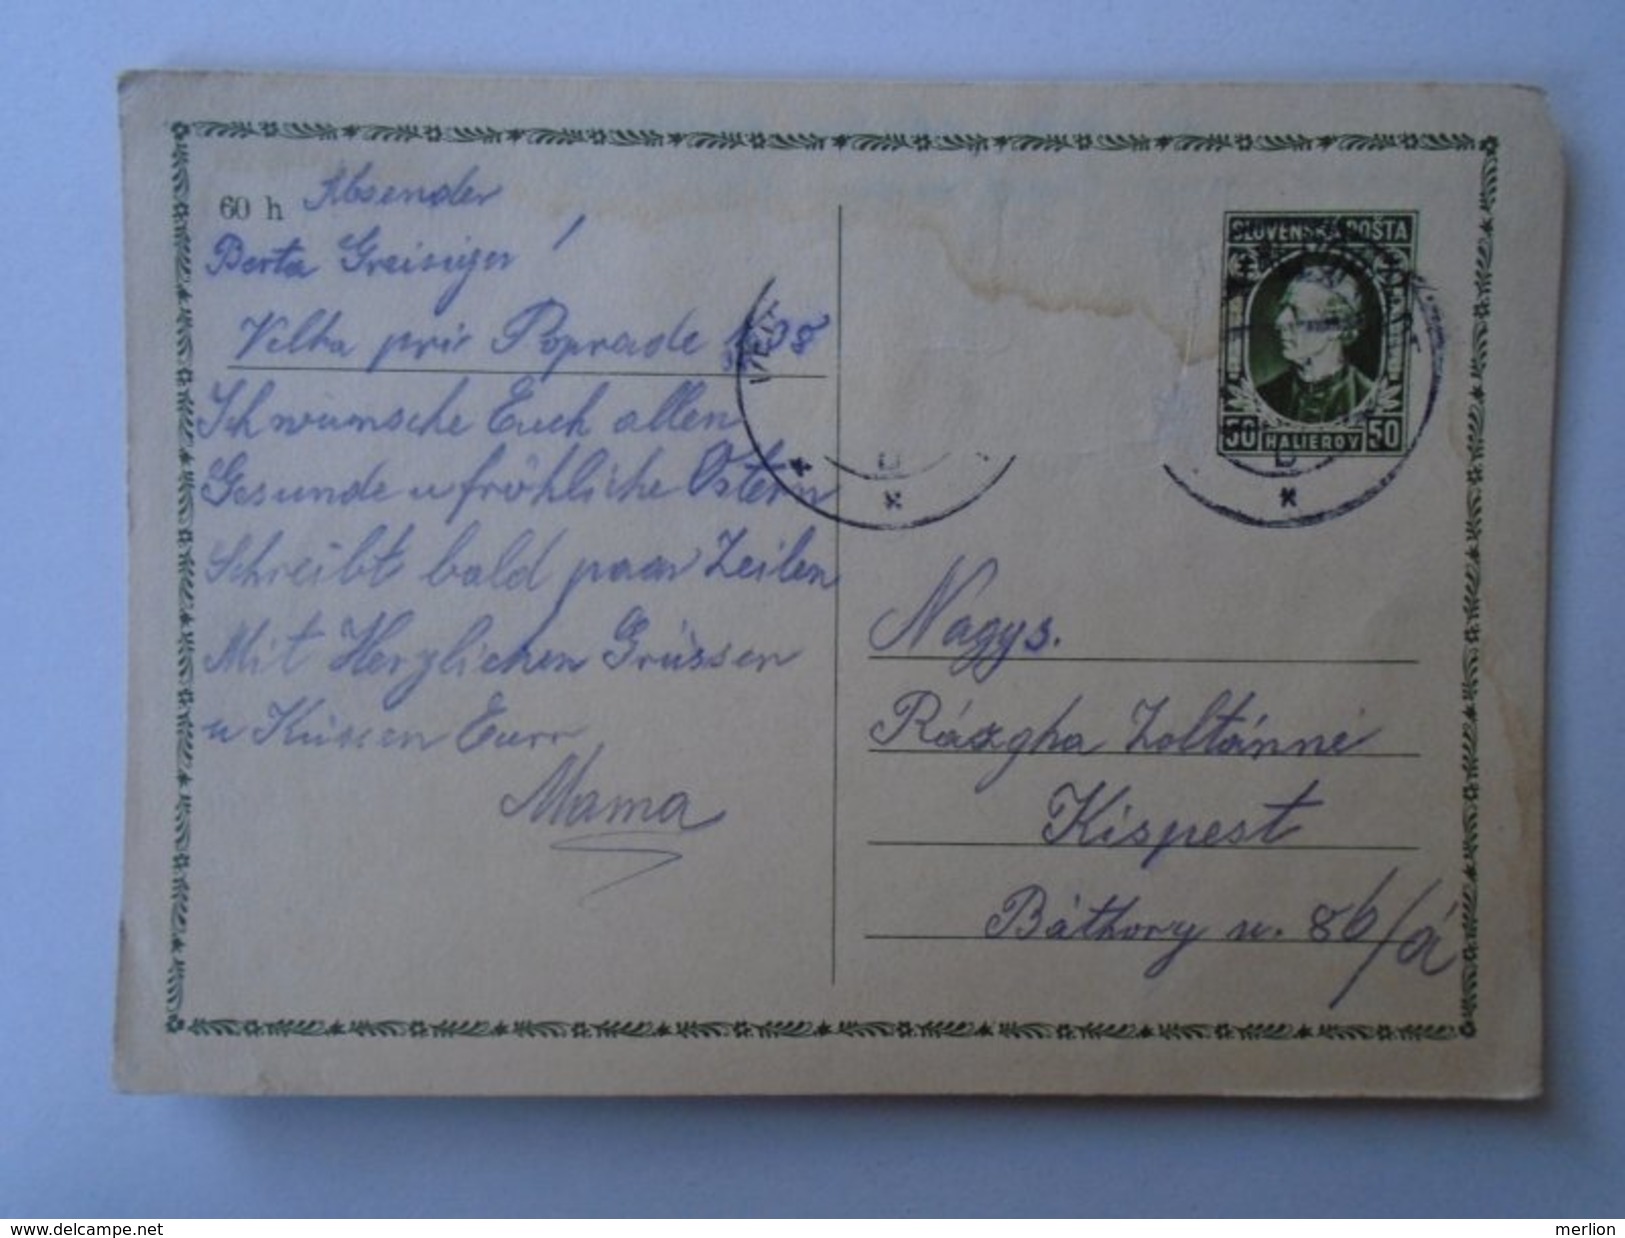 60 h Absender
Berta Greisiger!
Velka pri Poprade
Ich wünsche Euch allen
Gesunde u fröhliche Ostern
Schreibt bald paar Zeilen
Mit Herzlichen Grüssen
u Küssen Eure
Mama
SLOVENSKÁ POŠTA
50 HALIEROV 50
Nagys.
Rázgha Zoltánné
Kispest
Báthory u. 86/á
delcampe.net
merlion